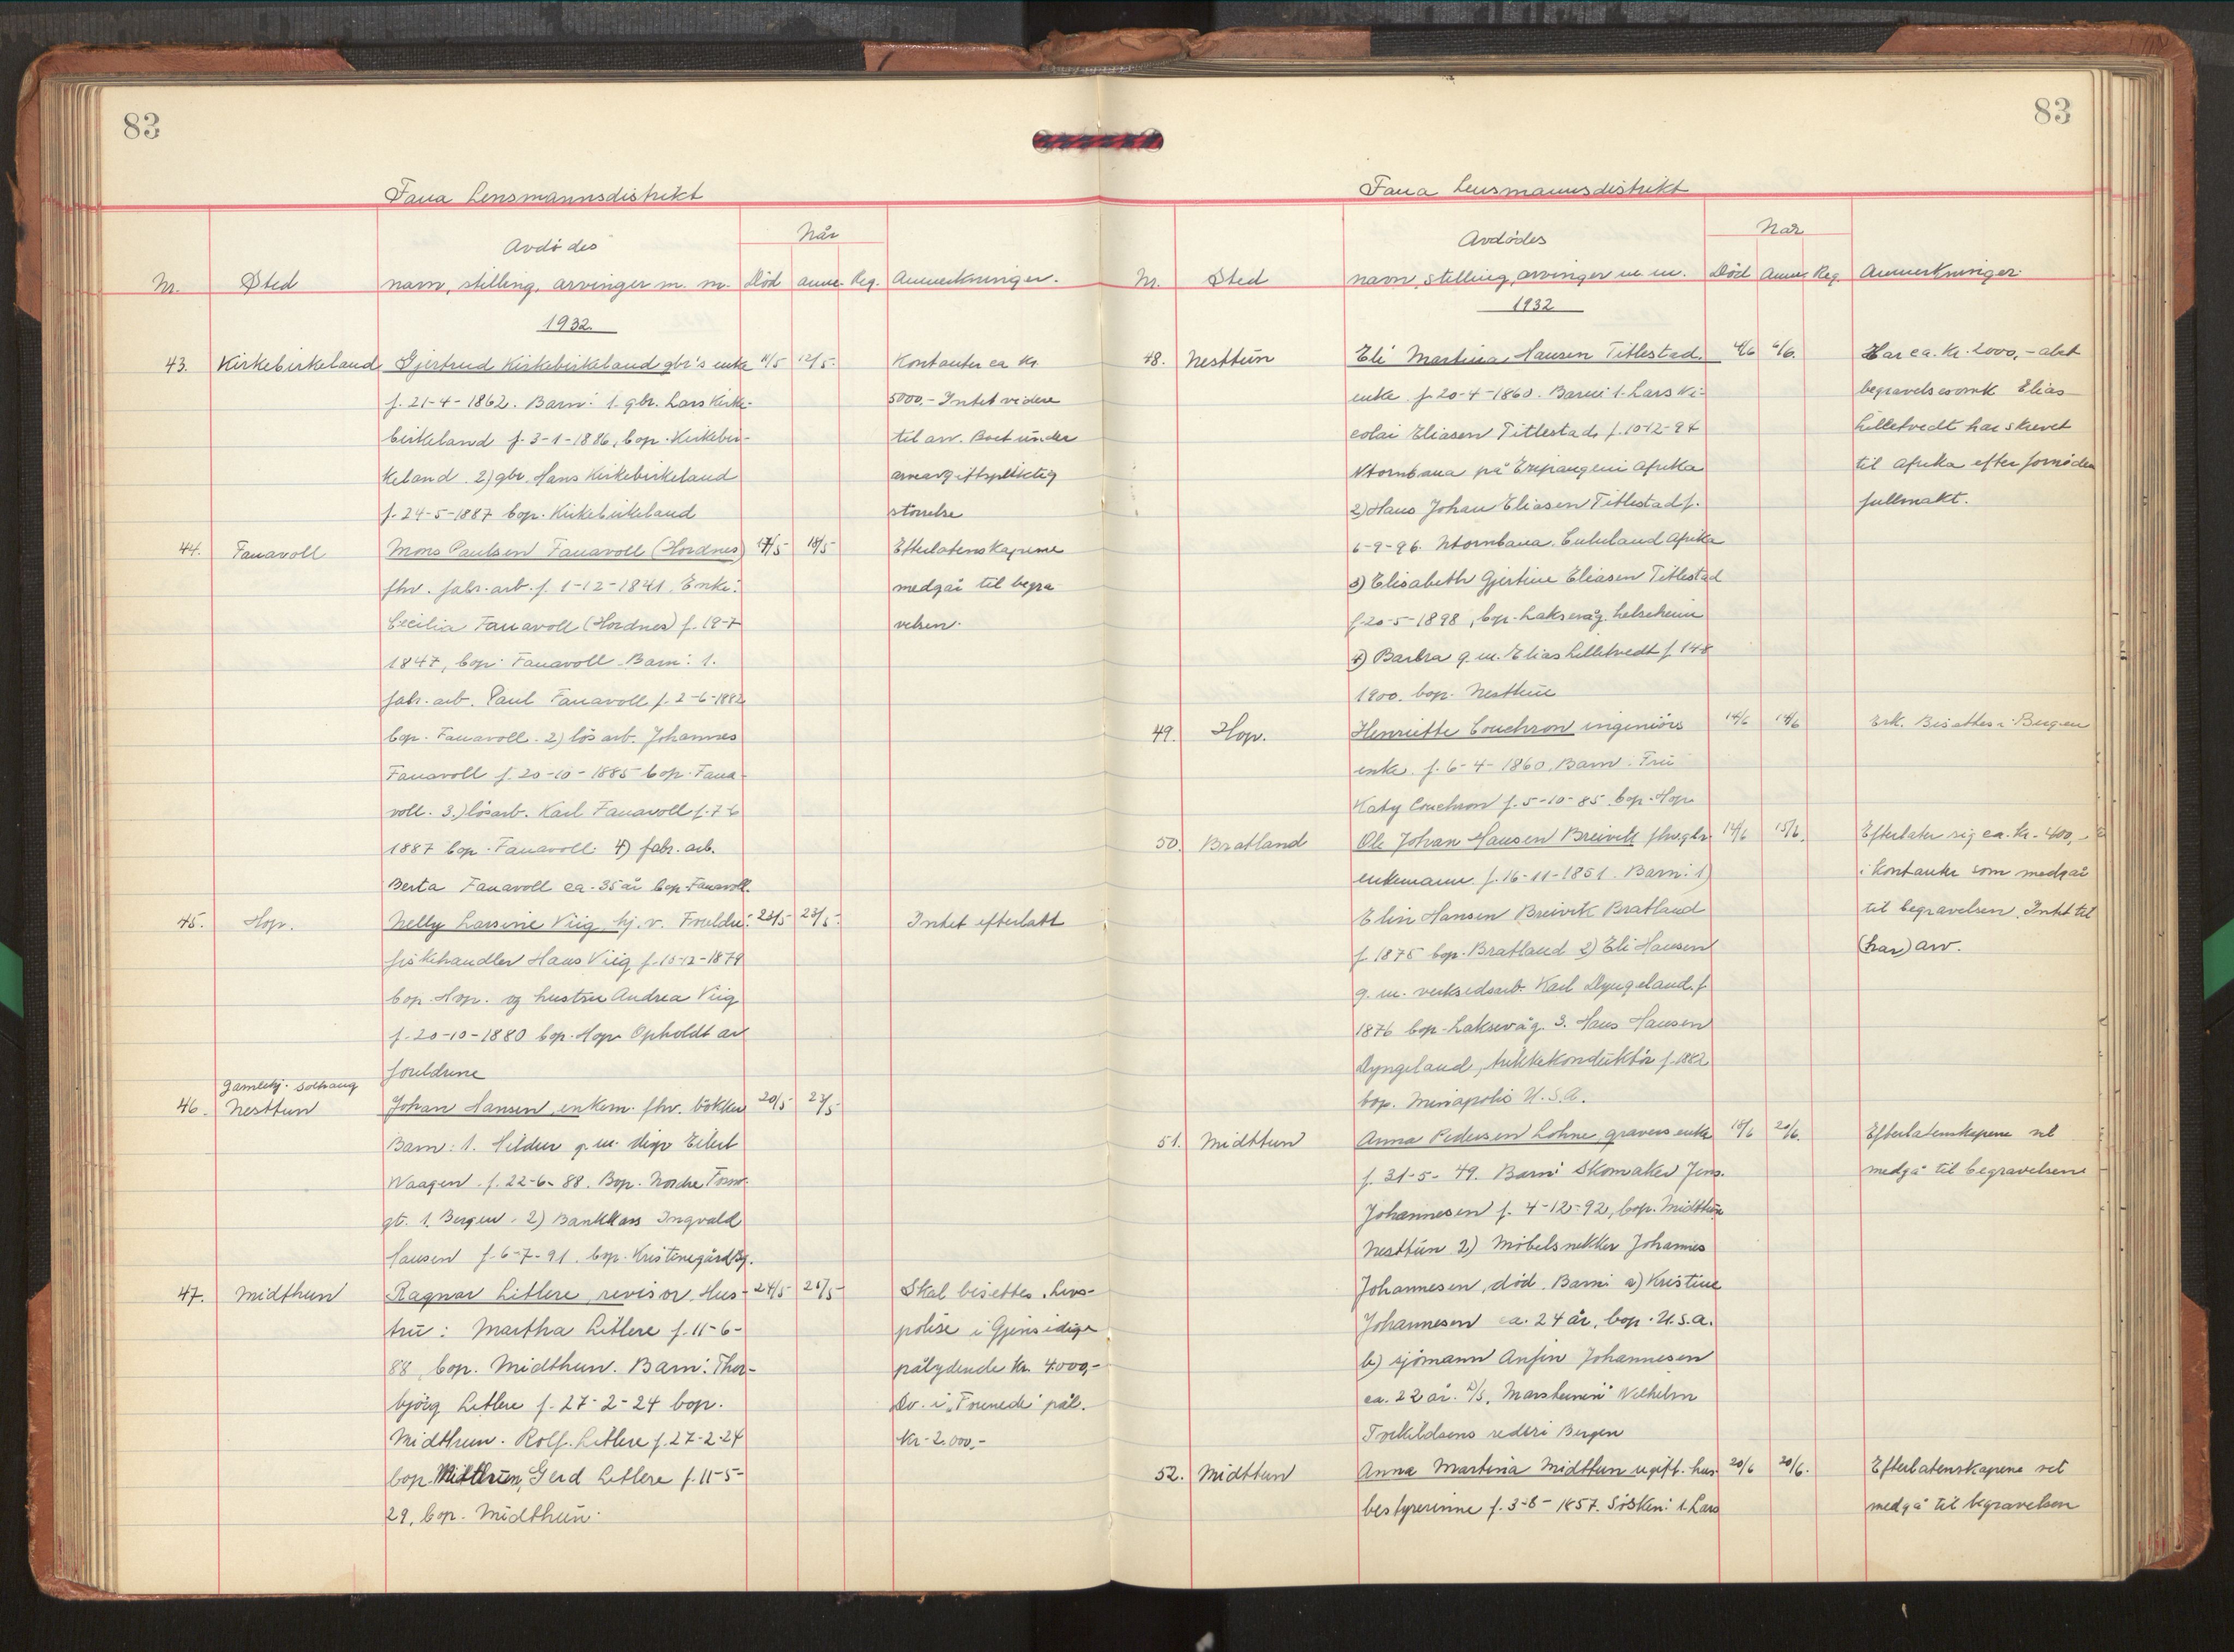 83
Fana Lensmannsdistrikt
Når
Avdødes
Nr. Sted navn, stilling, arvinger m. m. Død anm. Reg. Anmerkninger.
1932.
43. Kirkebirkeland Gjertrud Kirkebirkeland gbr's enke 11/5 12/5. Kontanter ca kr.
f. 21-4-1862. Barn: 1. gbr. Lars Kirke- 5000,- Intet videre
birkeland f. 3-1-1886, bop. Kirkebir- til arv. Boet under
keland. 2) gbr. Hans Kirkebirkeland arveavgiftspliktig
f. 24-5-1887 bop. Kirkebirkeland størrelse
44. Fanavoll Mons Paulsen Fanavoll (Hordnes) 17/5 18/5 Efterlatenskapene
fhv. fabr. arb. f. 1-12-1841. Enke: medgår til begra
Cecilia Fanavoll (Hordnes) f. 19-7 velsen.
1847, bop. Fanavoll. Barn: 1.
fabr. arb. Paul Fanavoll f. 2-6-1882
bop. Fanavoll. 2) løsarb. Johannes
Fanavoll f. 20-10-1885 bop. Fana-
voll. 3.) løsarb. Karl Fanavoll f. 7-6
1887 bop. Fanavoll. 4) fabr. arb.
Berta Fanavoll ca. 35 år bop. Fanavoll.
45. Hop. Nelly Larsine Viig hj. v. Foreldre: 23/5 23/5. Intet efterlatt
fiskehandler Hans Viig f. 10-12-1879
bop. Hop. og hustru Andrea Viig
f. 20-10-1880 bop. Hop. Opholdt av
foreldrene
Gamlehj. Solhaug
46. Nesttun Johan Hansen enkem. fhv. bøkker 20/5 23/5
Barn: 1. Hildur g. m. disp. Eilert
Waagen f. 22-6-88. Bop. Nordre
gt. 1. Bergen. 2) Bankkass Ingvald
Hansen f. 6-7-91. bop. Kristinegård
47. Midthun Ragnar Litlere, revisor. Hus- 24/5 25/5 Skal bisettes. Livs-
tru: Martha Litlere f. 11-6- polise i Gjensidige
88, bop. Midthun. Barn: Thor- pålydende kr. 4000,-
bjørg Litlere f. 27-2-24 bop. Do. i „Forenede" pål.
Midthun. Rolf Litlere f. 27-2-24 kr. 2.000,-
bop. Midthun, Gerd Litlere f. 11-5-
29, bop. Midthun.
83
Fana Lensmannsdistrikt
Når
Avdødes
Nr. Sted navn, stilling, arvinger m. m. Død Anm. Reg. Anmerkninger.
1932
48. Nesttun Eli Martina Hansen Titlestad. 4/6 6/6. Har ca. kr. 2000,- alet
enke f. 20-4-1860. Barn: 1. Lars Ni- begravelsesomk Elias
colai Eliasen Titlestad, f. 10-12-94 Lilletvedt har skrevet
på Afrika til Afrika efter fornøden
2) Hans Johan Eliasen Titlestad f. fullmakt.
6-9-96. Afrika
3) Elisabeth Gjertine Eliasen Titlestad
f. 20-5-1898, bop. Laksevåg.
4) Barbra g. m. Elias Lilletvedt f. 14-8
1900. bop. Nesttun
49. Hop. Henriette Couchron ingeniørs 14/6 14/6 Enk. Bisettes i Bergen
enke. f. 6-4-1860. Barn: Fru
Katy Couchron f. 5-10-85 bop. Hop.
50. Bratland Ole Johan Hansen Breivik fhv. gbr. 14/6 15/6. Efterlater sig ca. kr. 400,-
enkemann f. 16-11-1851. Barn: 1) i kontanter som medgår
Elin Hansen Breivik Bratland til begravelsen. Intet til
f. 1875 bop. Bratland 2) Eli Hansen (har) arv.
g. m. verkstedsarb. Karl Dyngeland, f.
1876 bop. Laksevåg. 3. Hans Hansen
Dyngeland, trikkekonduktør f. 1882
bop. Minapolis U.S.A.
51. Midttun Anna Pedersen Lohne gravers enke 18/6 20/6. Efterlatenskapene vil
f. 31-5-49. Barn: Skomaker Jens. medgå til begravelsene
Johannesen f. 4-12-92, bop. Midttun
Nesttun 2) Møbelsnekker Johannes
Johannesen, død. Barn: a) Kristine
Johannesen ca. 24 år, bop. U.S.A.
b) sjømann Anfin Johannesen
ca. 22 år. D/S. „Marsteinen" Wilhelm
Torkildsens rederi Bergen
52. Midttun Anna Martina Midttun ugift. hus- 20/6 20/6. Efterlatenskapene vil
bestyrerinne f. 3-8-1857. Søsken: 1. Lars medgå til begravelsen